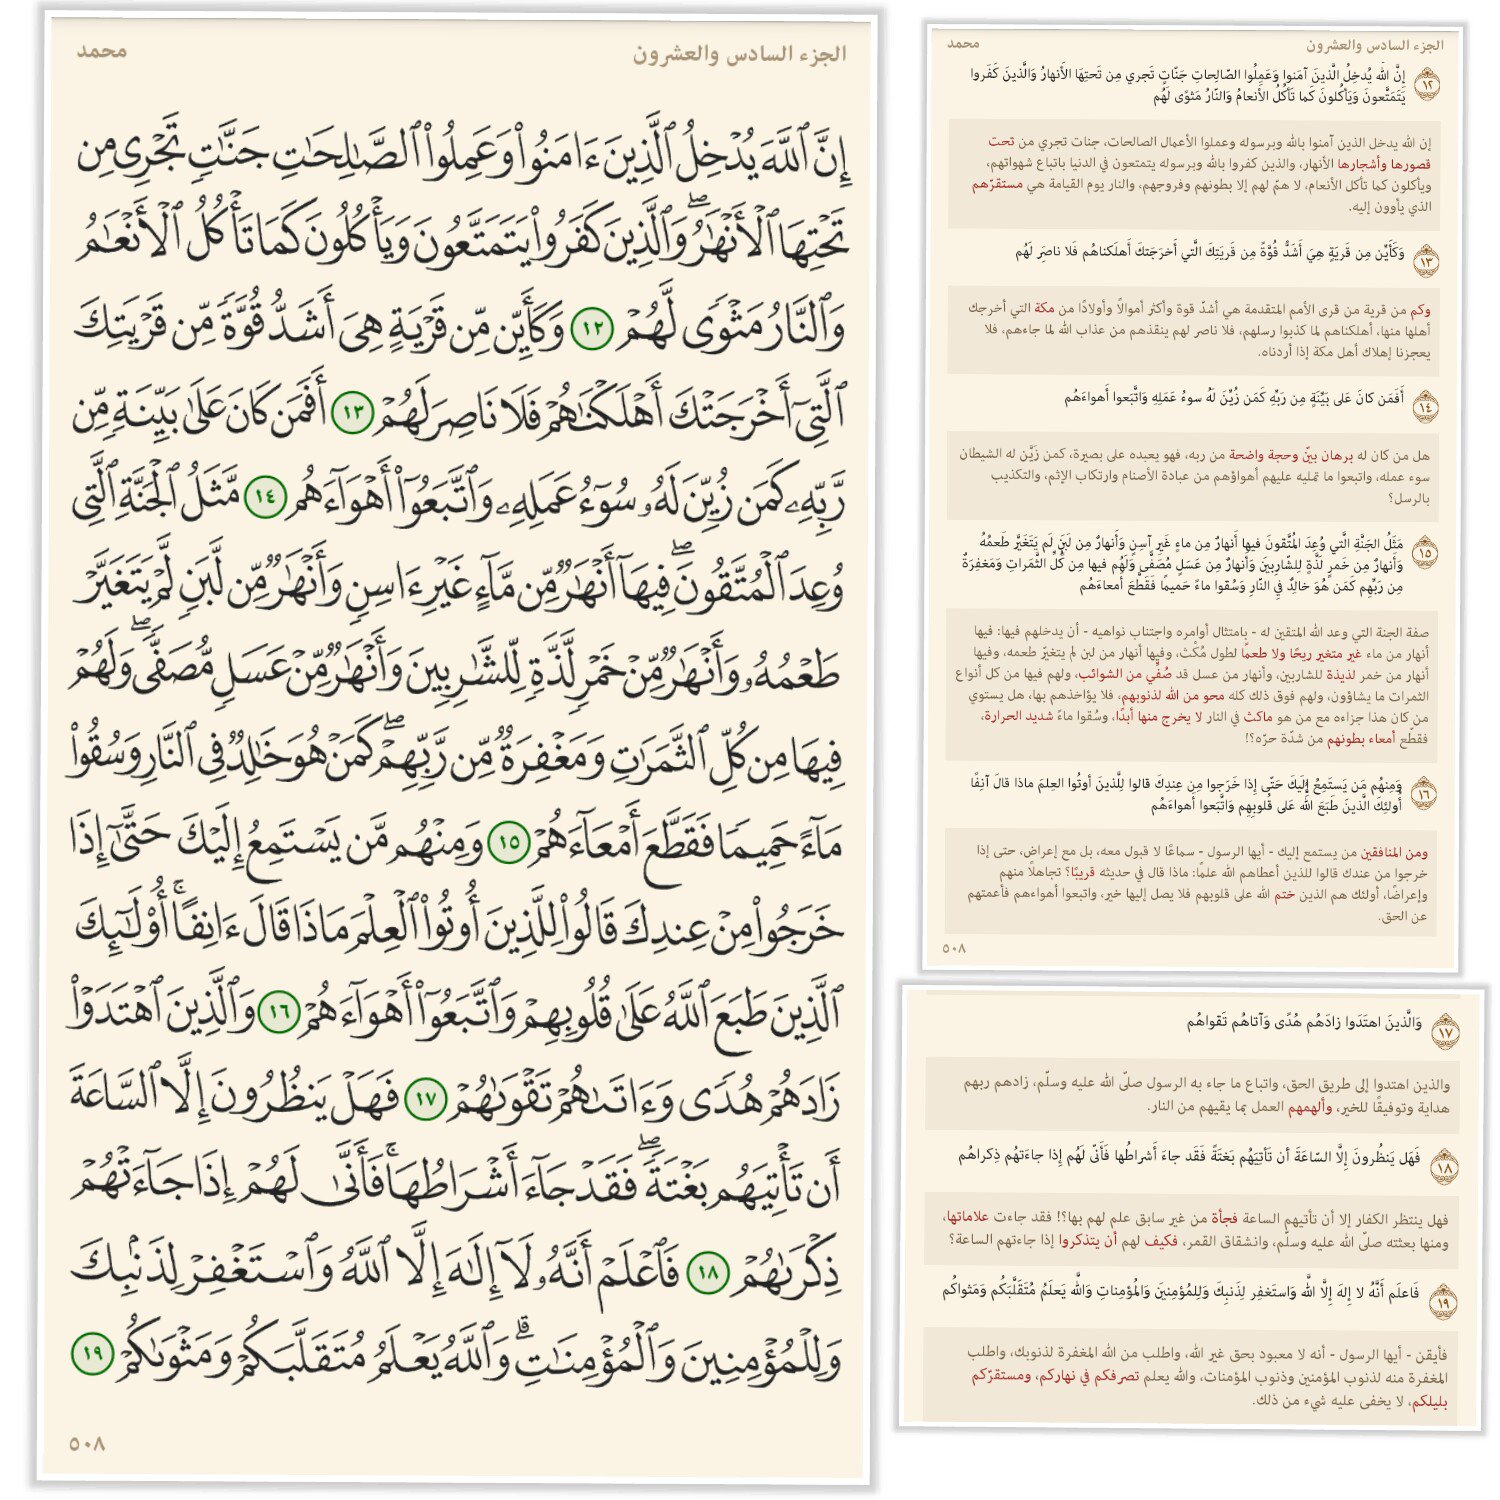 الجزء السادس والعشرون
محمد
إِنَّ ٱللَّهَ يُدۡخِلُ ٱلَّذِينَ ءَامَنُواْ وَعَمِلُواْ ٱلصَّٰلِحَٰتِ جَنَّٰتٖ تَجۡرِي مِن
تَحۡتِهَا ٱلۡأَنۡهَٰرُۖ وَٱلَّذِينَ كَفَرُواْ يَتَمَتَّعُونَ وَيَأۡكُلُونَ كَمَا تَأۡكُلُ ٱلۡأَنۡعَٰمُ
وَٱلنَّارُ مَثۡوٗى لَّهُمۡ ١٢ وَكَأَيِّن مِّن قَرۡيَةٍ هِيَ أَشَدُّ قُوَّةٗ مِّن قَرۡيَتِكَ
ٱلَّتِيٓ أَخۡرَجَتۡكَ أَهۡلَكۡنَٰهُمۡ فَلَا نَاصِرَ لَهُمۡ ١٣ أَفَمَن كَانَ عَلَىٰ بَيِّنَةٖ مِّن
رَّبِّهِۦ كَمَن زُيِّنَ لَهُۥ سُوٓءُ عَمَلِهِۦ وَٱتَّبَعُوٓاْ أَهۡوَآءَهُم ١٤ مَّثَلُ ٱلۡجَنَّةِ ٱلَّتِي
وُعِدَ ٱلۡمُتَّقُونَۖ فِيهَآ أَنۡهَٰرٞ مِّن مَّآءٍ غَيۡرِ ءَاسِنٖ وَأَنۡهَٰرٞ مِّن لَّبَنٖ لَّمۡ يَتَغَيَّرۡ
طَعۡمُهُۥ وَأَنۡهَٰرٞ مِّنۡ خَمۡرٖ لَّذَّةٖ لِّلشَّٰرِبِينَ وَأَنۡهَٰرٞ مِّنۡ عَسَلٖ مُّصَفّٗىۖ وَلَهُمۡ
فِيهَا مِن كُلِّ ٱلثَّمَرَٰتِ وَمَغۡفِرَةٞ مِّن رَّبِّهِمۡۖ كَمَنۡ هُوَ خَٰلِدٞ فِي ٱلنَّارِ وَسُقُواْ
مَآءً حَمِيمٗا فَقَطَّعَ أَمۡعَآءَهُمۡ ١٥ وَمِنۡهُم مَّن يَسۡتَمِعُ إِلَيۡكَ حَتَّىٰٓ إِذَا
خَرَجُواْ مِنۡ عِندِكَ قَالُواْ لِلَّذِينَ أُوتُواْ ٱلۡعِلۡمَ مَاذَا قَالَ ءَانِفًاۚ أُوْلَٰٓئِكَ
ٱلَّذِينَ طَبَعَ ٱللَّهُ عَلَىٰ قُلُوبِهِمۡ وَٱتَّبَعُوٓاْ أَهۡوَآءَهُمۡ ١٦ وَٱلَّذِينَ ٱهۡتَدَوۡاْ
زَادَهُمۡ هُدٗى وَءَاتَىٰهُمۡ تَقۡوَىٰهُمۡ ١٧ فَهَلۡ يَنظُرُونَ إِلَّا ٱلسَّاعَةَ
أَن تَأۡتِيَهُم بَغۡتَةٗۖ فَقَدۡ جَآءَ أَشۡرَاطُهَاۚ فَأَنَّىٰ لَهُمۡ إِذَا جَآءَتۡهُمۡ
ذِكۡرَىٰهُمۡ ١٨ فَٱعۡلَمۡ أَنَّهُۥ لَآ إِلَٰهَ إِلَّا ٱللَّهُ وَٱسۡتَغۡفِرۡ لِذَنۢبِكَ
وَلِلۡمُؤۡمِنِينَ وَٱلۡمُؤۡمِنَٰتِۗ وَٱللَّهُ يَعۡلَمُ مُتَقَلَّبَكُمۡ وَمَثۡوَىٰكُمۡ ١٩
٥٠٨
الجزء السادس والعشرون
محمد
١٢ إِنَّ اللَّهَ يُدخِلُ الَّذينَ آمَنوا وَعَمِلُوا الصّالِحاتِ جَنّاتٍ تَجري مِن تَحتِهَا الأَنهارُ وَالَّذينَ كَفَروا
يَتَمَتَّعونَ وَيَأكُلونَ كَما تَأكُلُ الأَنعامُ وَالنّارُ مَثوًى لَهُم
إن الله يدخل الذين آمنوا بالله وبرسوله وعملوا الأعمال الصالحات، جنات تجري من تحت
قصورها وأشجارها الأنهار، والذين كفروا بالله وبرسوله يتمتعون في الدنيا باتباع شهواتهم،
ويأكلون كما تأكل الأنعام، لا همّ لهم إلا بطونهم وفروجهم، والنار يوم القيامة هي مستقرّهم
الذي يأوون إليه.
١٣ وَكَأَيِّن مِن قَريَةٍ هِيَ أَشَدُّ قُوَّةً مِن قَريَتِكَ الَّتي أَخرَجَتكَ أَهلَكناهُم فَلا ناصِرَ لَهُم
وكم من قرية من قرى الأمم المتقدمة هي أشدّ قوة وأكثر أموالًا وأولادًا من مكة التي أخرجك
أهلها منها، أهلكناهم لما كذبوا رسلهم، فلا ناصر لهم ينقذهم من عذاب الله لما جاءهم، فلا
يعجزنا إهلاك أهل مكة إذا أردناه.
١٤ أَفَمَن كانَ عَلى بَيِّنَةٍ مِن رَبِّهِ كَمَن زُيِّنَ لَهُ سوءُ عَمَلِهِ وَاتَّبَعوا أَهواءَهُم
هل من كان له برهان بيّن وحجة واضحة من ربه، فهو يعبده على بصيرة، كمن زَيَّن له الشيطان
سوء عمله، واتبعوا ما تمليه عليهم أهواؤهم من عبادة الأصنام وارتكاب الإثم، والتكذيب
بالرسل؟
١٥ مَثَلُ الجَنَّةِ الَّتي وُعِدَ المُتَّقونَ فيها أَنهارٌ مِن ماءٍ غَيرِ آسِنٍ وَأَنهارٌ مِن لَبَنٍ لَم يَتَغَيَّر طَعمُهُ
وَأَنهارٌ مِن خَمرٍ لَذَّةٍ لِلشّارِبينَ وَأَنهارٌ مِن عَسَلٍ مُصَفًّى وَلَهُم فيها مِن كُلِّ الثَّمَراتِ وَمَغفِرَةٌ
مِن رَبِّهِم كَمَن هُوَ خالِدٌ فِي النّارِ وَسُقوا ماءً حَميمًا فَقَطَّعَ أَمعاءَهُم
صفة الجنة التي وعد الله المتقين له - بامتثال أوامره واجتناب نواهيه - أن يدخلهم فيها: فيها
أنهار من ماء غير متغير ريحًا ولا طعمًا لطول مُكْث، وفيها أنهار من لبن لم يتغيّر طعمه، وفيها
أنهار من خمر لذيذة للشاربين، وأنهار من عسل قد صُفِّي من الشوائب، ولهم فيها من كل أنواع
الثمرات ما يشاؤون، ولهم فوق ذلك كله محو من الله لذنوبهم، فلا يؤاخذهم بها، هل يستوي
من كان هذا جزاءه مع من هو ماكث في النار لا يخرج منها أبدًا، وسُقوا ماءً شديد الحرارة،
فقطّع أمعاء بطونهم من شدّة حرّه؟!
١٦ وَمِنهُم مَن يَستَمِعُ إِلَيكَ حَتّى إِذا خَرَجوا مِن عِندِكَ قالوا لِلَّذينَ أوتُوا العِلمَ ماذا قالَ آنِفًا
أُولئِكَ الَّذينَ طَبَعَ اللَّهُ عَلى قُلوبِهِم وَاتَّبَعوا أَهواءَهُم
ومن المنافقين من يستمع إليك - أيها الرسول - سماعًا لا قبول معه، بل مع إعراض، حتى إذا
خرجوا من عندك قالوا للذين أعطاهم الله علمًا: ماذا قال في حديثه قريبًا؟ تجاهلًا منهم
وإعراضًا، أولئك هم الذين ختم الله على قلوبهم فلا يصل إليها خير، واتبعوا أهواءهم فأعمتهم
عن الحق.
٥٠٨
١٧ وَالَّذينَ اهتَدَوا زادَهُم هُدًى وَآتاهُم تَقواهُم
والذين اهتدوا إلى طريق الحق، واتباع ما جاء به الرسول صلّى الله عليه وسلّم، زادهم ربهم
هداية وتوفيقًا للخير، وألهمهم العمل بما يقيهم من النار.
١٨ فَهَل يَنظُرونَ إِلَّا السّاعَةَ أَن تَأتِيَهُم بَغتَةً فَقَد جاءَ أَشراطُها فَأَنّى لَهُم إِذا جاءَتهُم ذِكراهُم
فهل ينتظر الكفار إلا أن تأتيهم الساعة فجأة من غير سابق علم لهم بها؟! فقد جاءت علاماتها،
ومنها بعثته صلّى الله عليه وسلّم، وانشقاق القمر، فكيف لهم أن يتذكروا إذا جاءتهم الساعة؟
١٩ فَاعلَم أَنَّهُ لا إِلهَ إِلَّا اللَّهُ وَاستَغفِر لِذَنبِكَ وَلِلمُؤمِنينَ وَالمُؤمِناتِ وَاللَّهُ يَعلَمُ مُتَقَلَّبَكُم وَمَثواكُم
فأيقن - أيها الرسول - أنه لا معبود بحق غير الله، واطلب من الله المغفرة لذنوبك، واطلب
المغفرة منه لذنوب المؤمنين وذنوب المؤمنات، والله يعلم تصرفكم في نهاركم، ومستقرّكم
بليلكم، لا يخفى عليه شيء من ذلك.